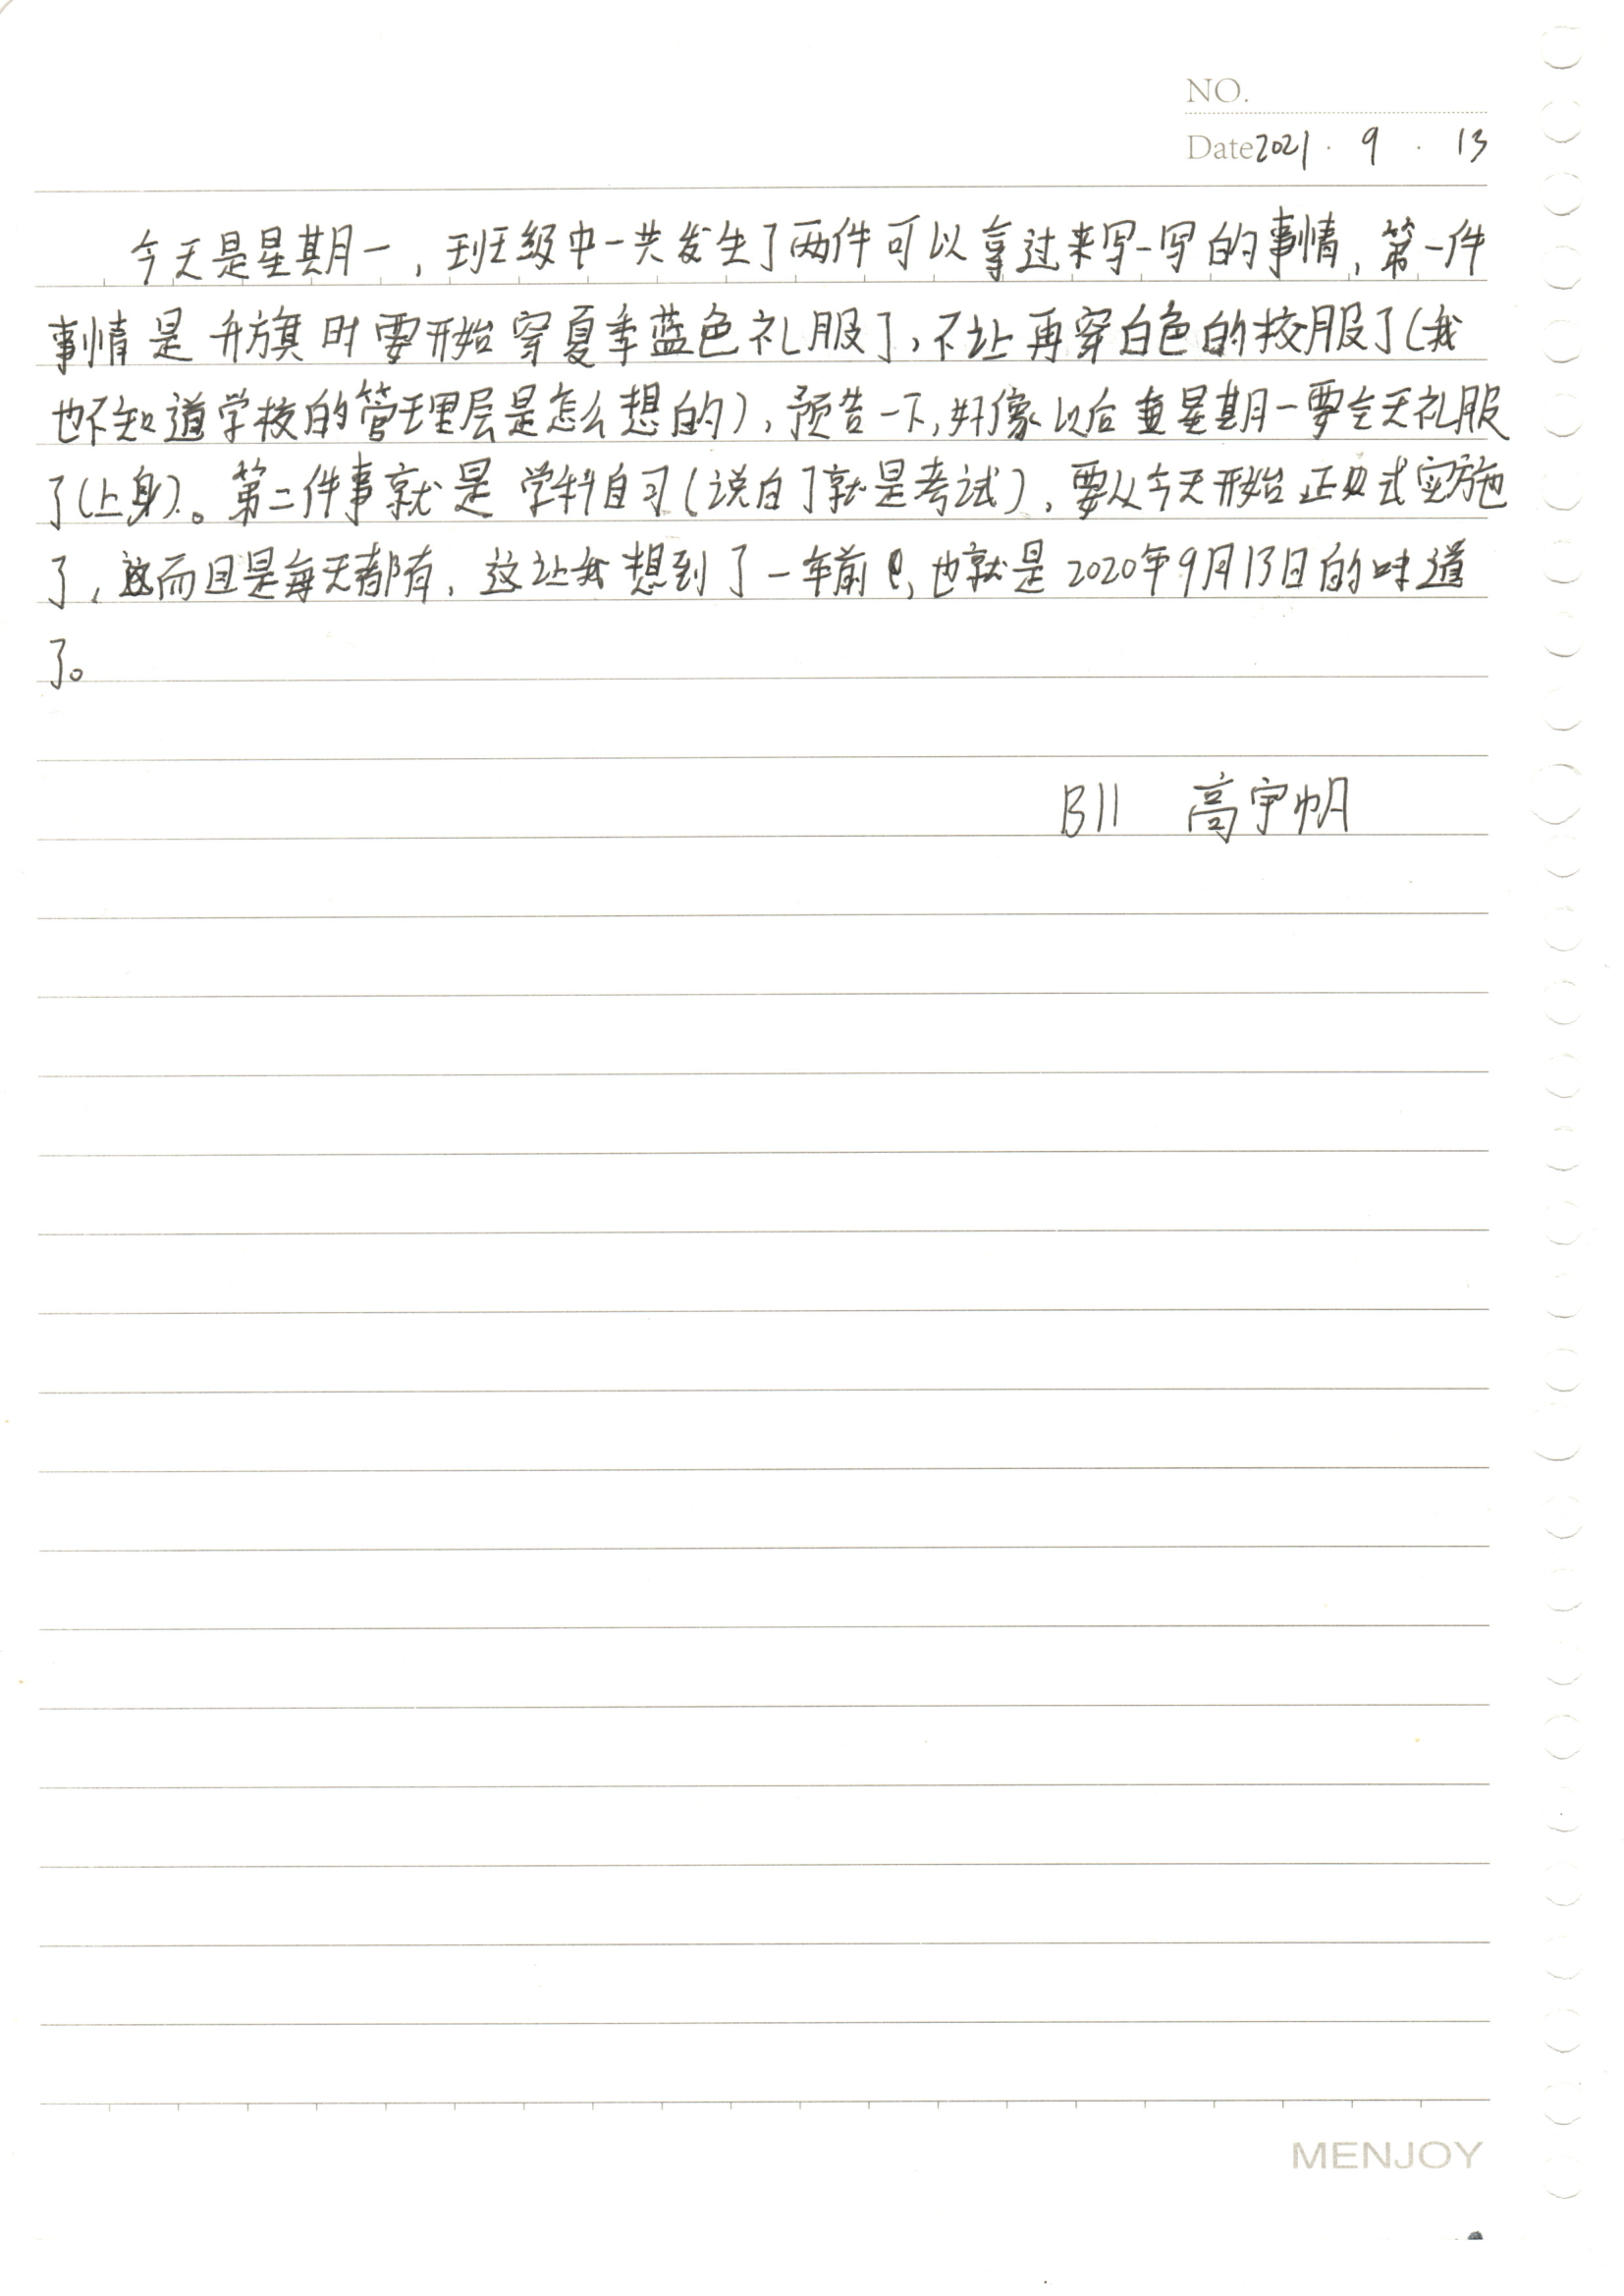 NO.
Date 2021 · 9 · 13
今天是星期一，班级中一共发生了两件可以拿过来写一写的事情，第一件
事情是升旗时要开始穿夏季蓝色礼服了，不让再穿白色的校服了（我
也不知道学校的管理层是怎么想的），预告一下，好像以后星期一要全天礼服
了（上身）。第二件事就是学科自习（说白了就是考试），要从今天开始正式实施
了，而且是每天都有，这让我想到了一年前，也就是2020年9月13日的味道
了。
B11 高宇帆
MENJOY